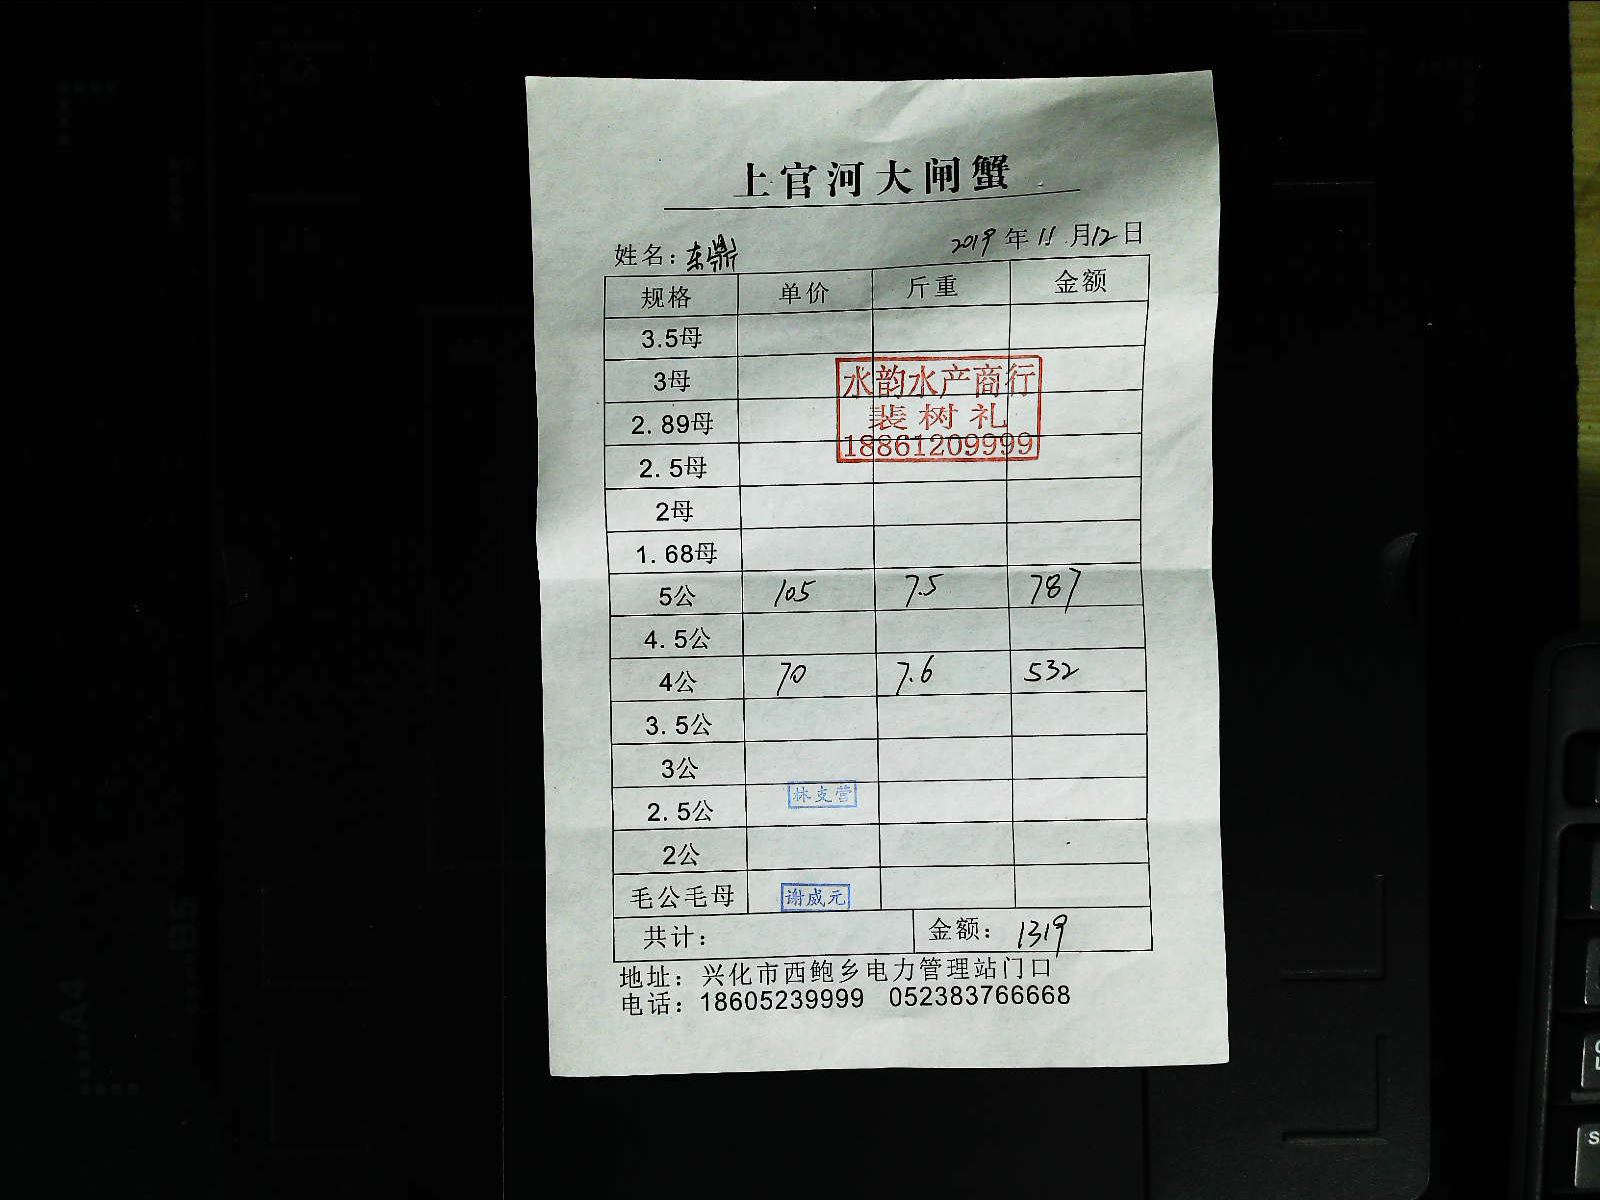 上官河大闸蟹
姓名：东鼎 2019年11月12日
规格 单价 斤重 金额
3.5母
3母
2.89母
2.5母
2母
1.68母
水韵水产商行
裴树礼
18861209999
5公 105 7.5 787
4.5公
4公 70 7.6 532
3.5公
3公
2.5公
林支营
2公
毛公毛母 谢威元
共计： 金额：1319
地址：兴化市西鲍乡电力管理站门口
电话：18605239999 052383766668
A4
B5